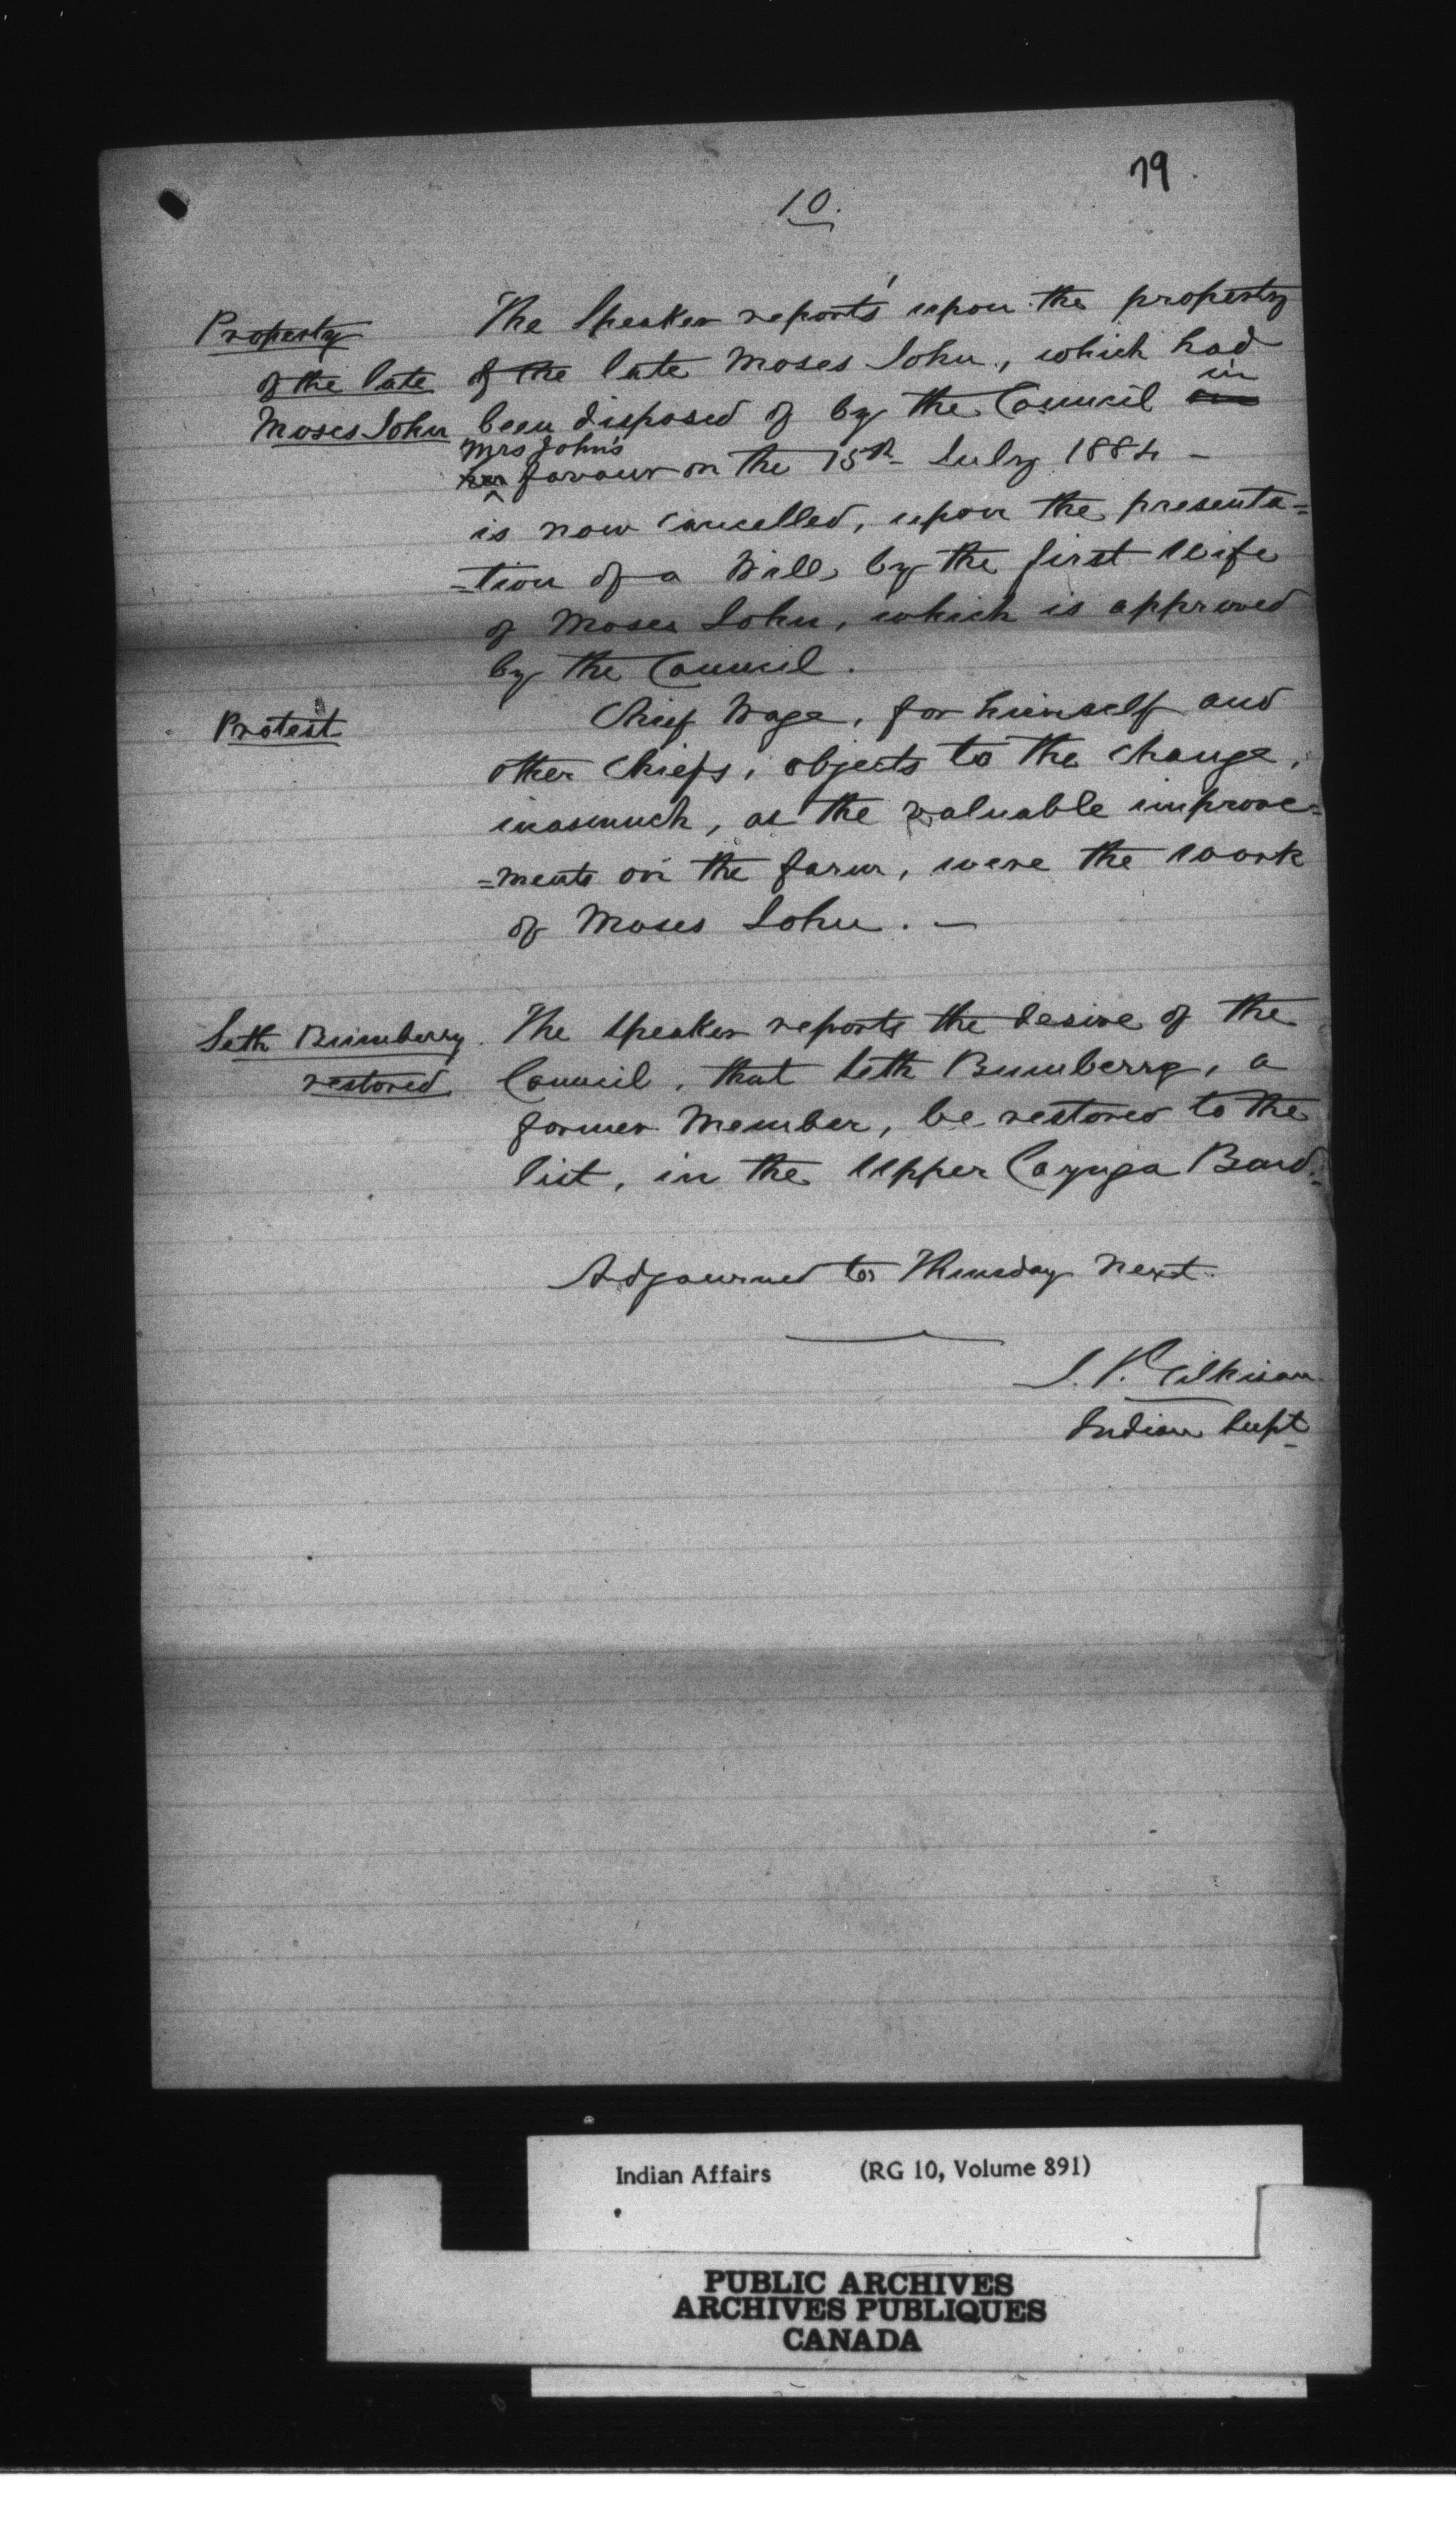 79.
10.
Property
of the late
Moses John
The Speaker reports upon the property
of the late Moses John, which had
been disposed of by the Council in
Mrs John's
her favour on the 15th July 1884 -
is now cancelled, upon the presenta=
=tion of a Will, by the first wife
of Moses John, which is approved
by the Council.
Protest
Chief Wage, for himself and
other Chiefs, objects to the change,
inasmuch, as the valuable improve=
=ments on the farm, were the work
of Moses John. -
Seth Bumberry
restored
The Speaker reports the desire of the
Council, that Seth Bumberry, a
former Member, be restored to the
list, in the Upper Cayuga Band.
Adjourned to Thursday next.
J. T. Gilkison
Indian Supt
Indian Affairs (RG 10, Volume 891)
PUBLIC ARCHIVES
ARCHIVES PUBLIQUES
CANADA